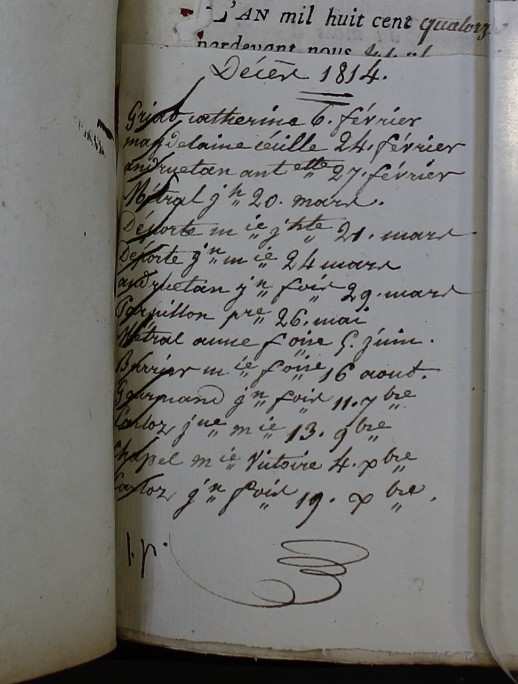 L'AN mil huit cent quatorz
pardevant nous
Décès 1814.
Griat catherine 6. février
magdelaine 24. février
andruetan ant ette 27. février
Métral jn 20. mars.
Déporte mie jhte 21. mars
Déporte jn mie 24 mars
andruetan jn fois 29. mars
pre 26. mai
Métral anne foise 5. juin.
Burrier mie foise 16 aout.
Gourmand jn fois 11. 7bre
Carloz jne mie 13. 9bre
Chapel mie Victoire 4. xbre
Carloz jn fois 19. xbre.